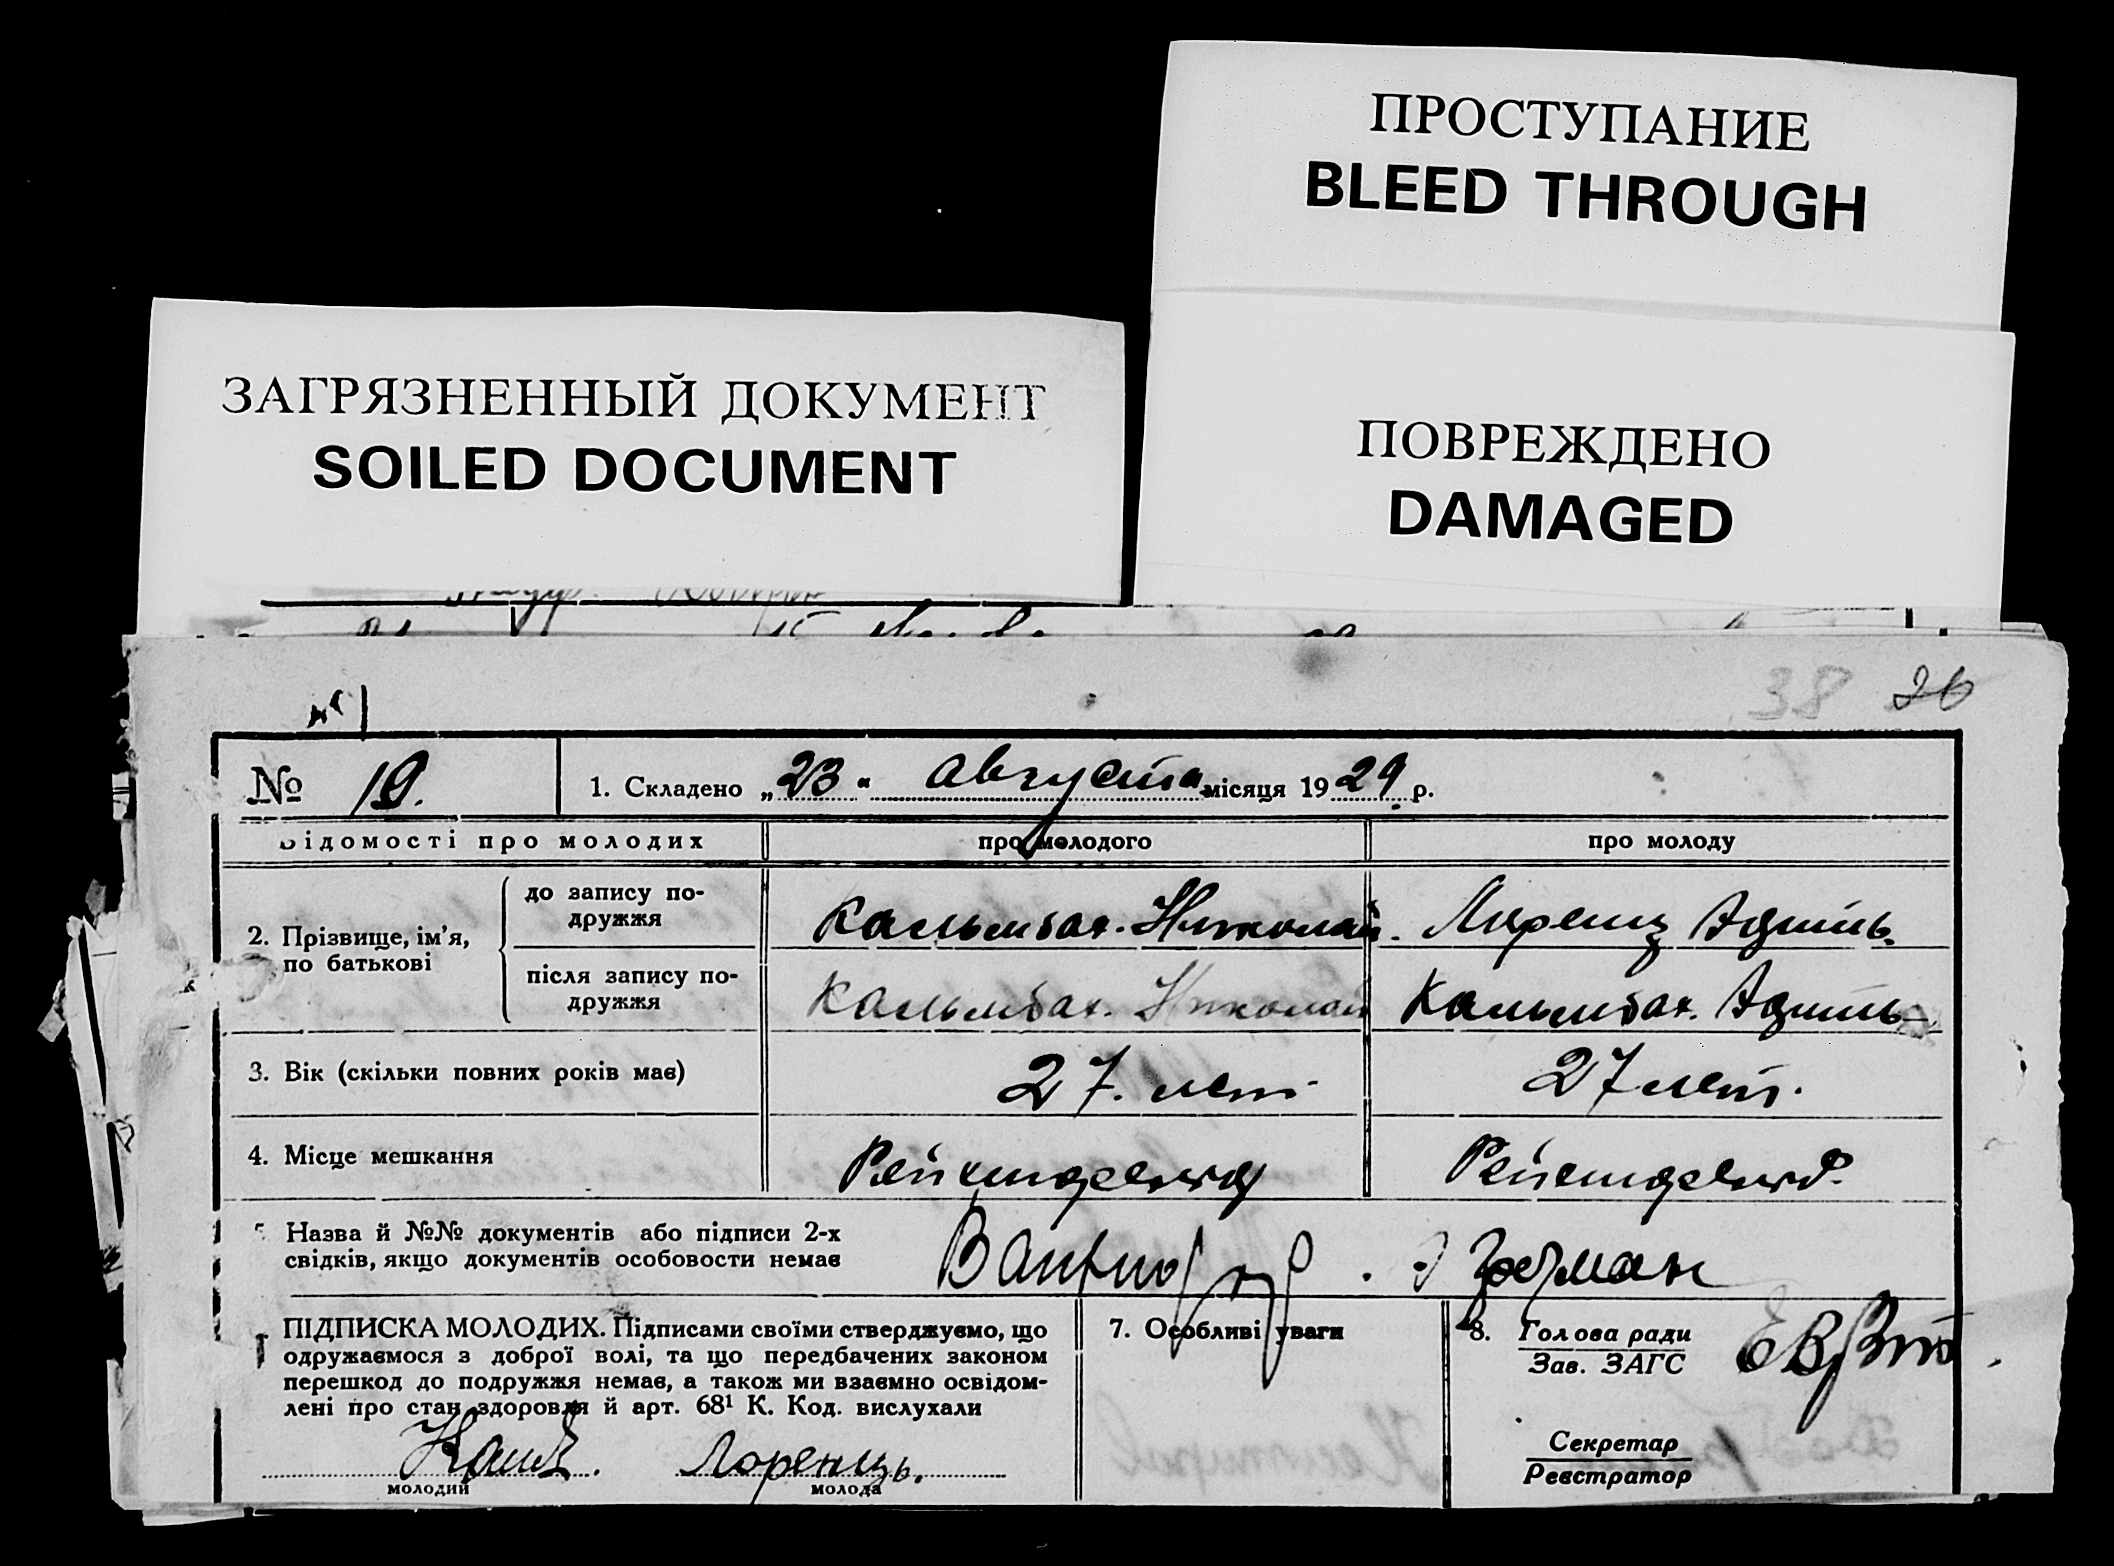 ПРОСТУПАНИЕ
BLEED THROUGH
ЗАГРЯЗНЕННЫЙ ДОКУМЕНТ
SOILED DOCUMENT
ПОВРЕЖДЕНО
DAMAGED
38 26
№ 19. 1. Складено „23“ августа місяця 1929 р.
Відомості про молодих про молодого про молоду
2. Прізвище, ім'я, по батькові
до запису подружжя Кальмбах. Николай. Лоренц Адиль.
після запису подружжя Кальмбах. Николай Кальмбах. Адиль
3. Вік (скільки повних років має) 27. лет 27 лет.
4. Місце мешкання Рейхенфельд Рейхенфельд.
5 Назва й №№ документів або підписи 2-х
свідків, якщо документів особовости немає
ПІДПИСКА МОЛОДИХ. Підписами своїми стверджуємо, що
одружаємося з доброї волі, та що передбачених законом
перешкод до подружжя немає, а також ми взаємно освідом-
лені про стан здоровля й арт. 68¹ К. Код. вислухали
Лоренць.
молодий молода
7. Особливі уваги
8. Голова ради
Зав. ЗАГС
Секретар
Реєстратор